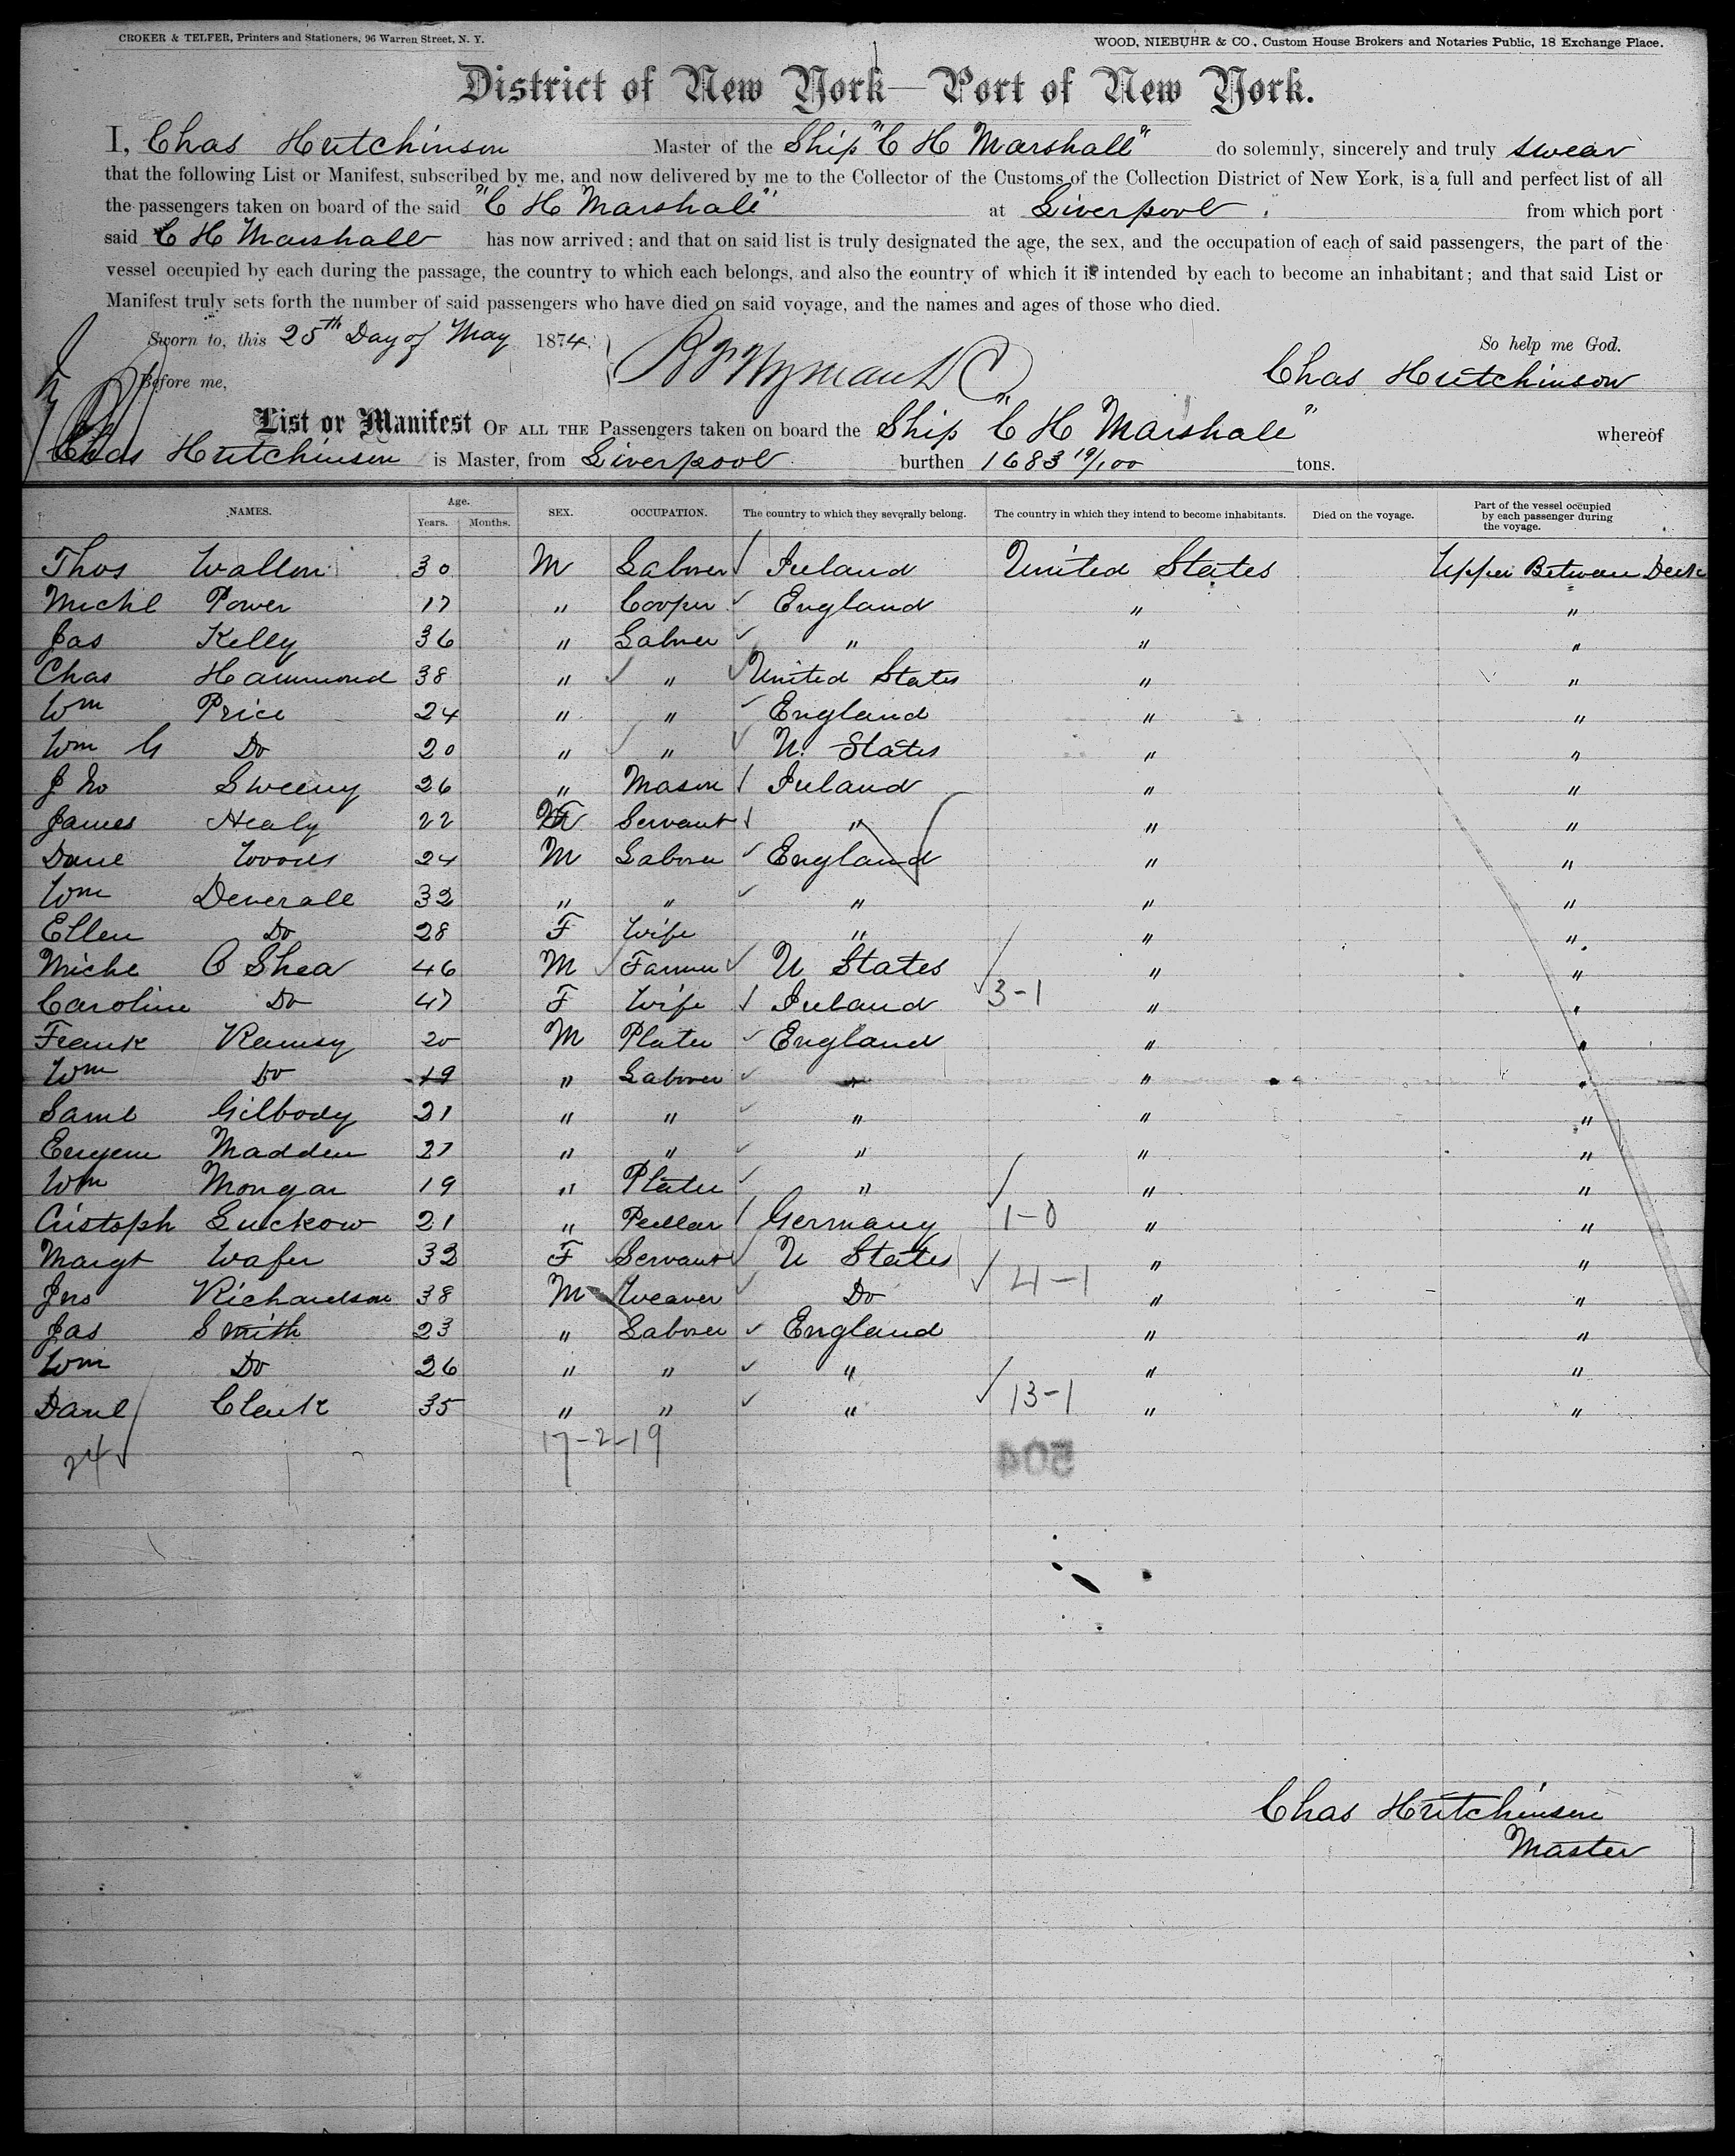 CROKER & TELFER, Printers and Stationers, 96 Warren Street, N. Y.
WOOD, NIEBUHR & CO., Custom House Brokers and Notaries Public, 18 Exchange Place.
District of New York—Port of New York.
I, Chas Hutchinson Master of the Ship "C H Marshall" do solemnly, sincerely and truly swear
that the following List or Manifest, subscribed by me, and now delivered by me to the Collector of the Customs of the Collection District of New York, is a full and perfect list of all
the passengers taken on board of the said "C H Marshall" at Liverpool from which port
said C H Marshall has now arrived; and that on said list is truly designated the age, the sex, and the occupation of each of said passengers, the part of the
vessel occupied by each during the passage, the country to which each belongs, and also the country of which it is intended by each to become an inhabitant; and that said List or
Manifest truly sets forth the number of said passengers who have died on said voyage, and the names and ages of those who died.
Sworn to, this 25th Day of May 1874. So help me God.
Before me, Chas Hutchinson
List or Manifest OF ALL THE Passengers taken on board the Ship "C H Marshall" whereof
Chas Hutchinson is Master, from Liverpool burthen 1683 19/100 tons.
NAMES. Age. Years. Months. SEX. OCCUPATION. The country to which they severally belong. The country in which they intend to become inhabitants. Died on the voyage. Part of the vessel occupied by each passenger during the voyage.
Thos Wallon 30 M Laborer Ireland United States Upper Between Deck
Michl Power 17 " Cooper England " "
Jas Kelly 36 " Laborer " " "
Chas Hammond 38 " " United States " "
Wm Price 24 " " England " "
Wm G Do 20 " " U. States " "
Jno Sweeny 26 " Mason Ireland " "
James Healy 22 Servant " " "
Danl Woods 24 M Laborer England " "
Wm Deverall 32 " " " " "
Ellen Do 28 F Wife " " "
Michl O Shea 46 M Farmer U States " "
Caroline Do 47 F Wife Ireland 3-1 " "
Frank Ramsy 20 M Plater England " "
Wm Do 19 " Laborer " " "
Saml Gilbody 21 " " " " "
Eugene Madden 21 " " " " "
Wm Mongan 19 " Plater " " "
Cristoph Luckow 21 " Germany 1-0 " "
Margt Wafer 32 F Servant U States " "
Jno Richardson 38 M Weaver Do 4-1 " "
Jas Smith 23 " Laborer England " "
Wm Do 26 " " " " "
Danl Clark 35 " " " 13-1 " "
24 17-2-19 504
Chas Hutchinson
Master